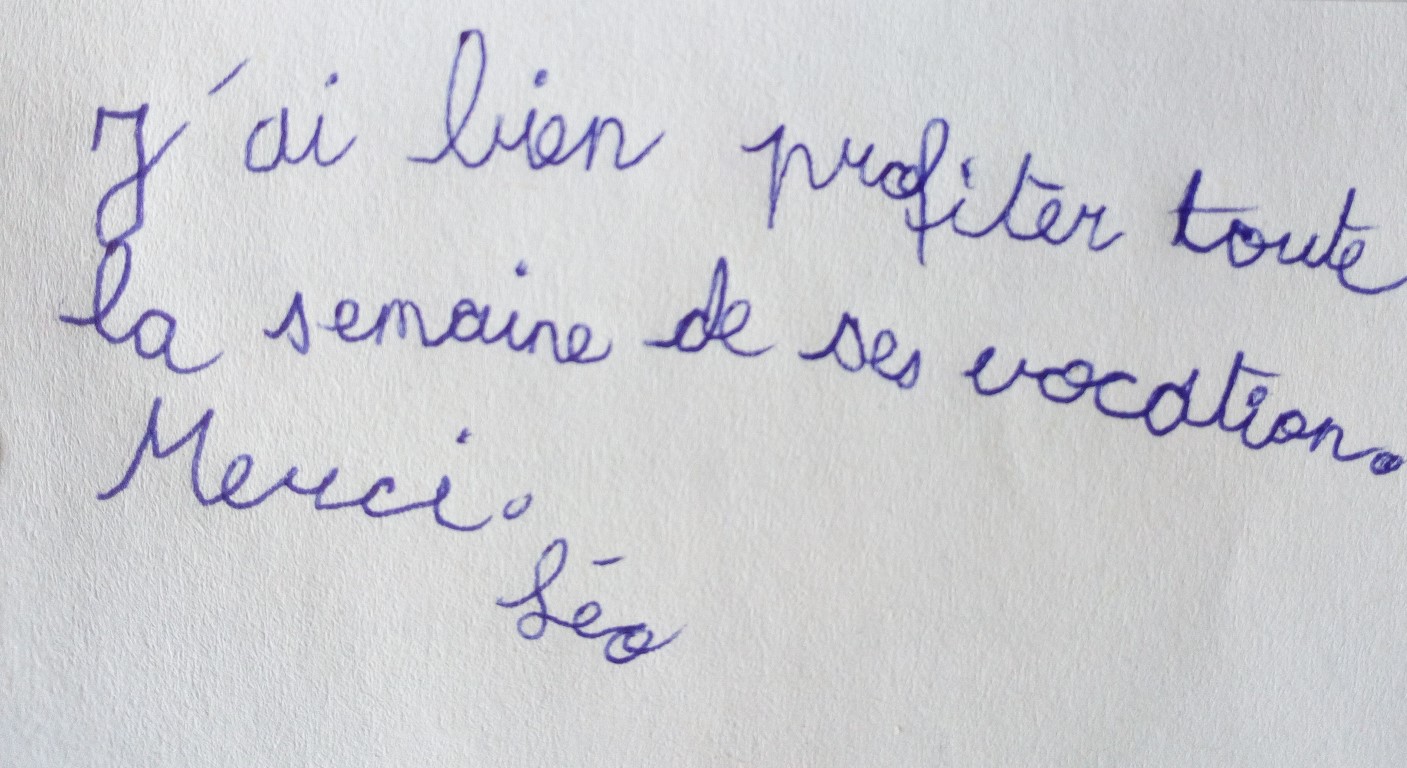 J'ai bien profiter toute
la semaine de ses vocation.
Merci.
Léo